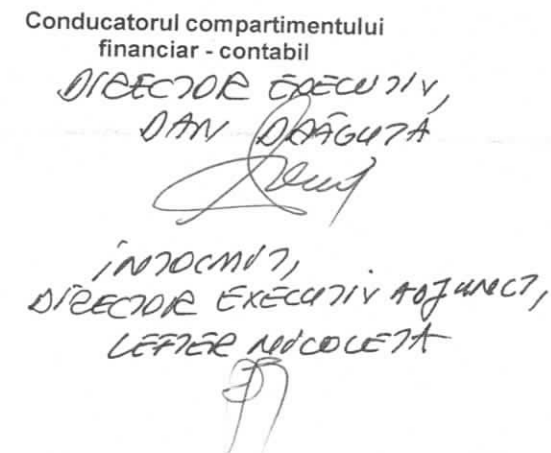 Conducatorul compartimentului
financiar - contabil
DIRECTOR EXECUTIV,
DAN DRĂGUȚĂ
ÎNTOCMIT,
DIRECTOR EXECUTIV ADJUNCT,
LEFTER NICOLETA